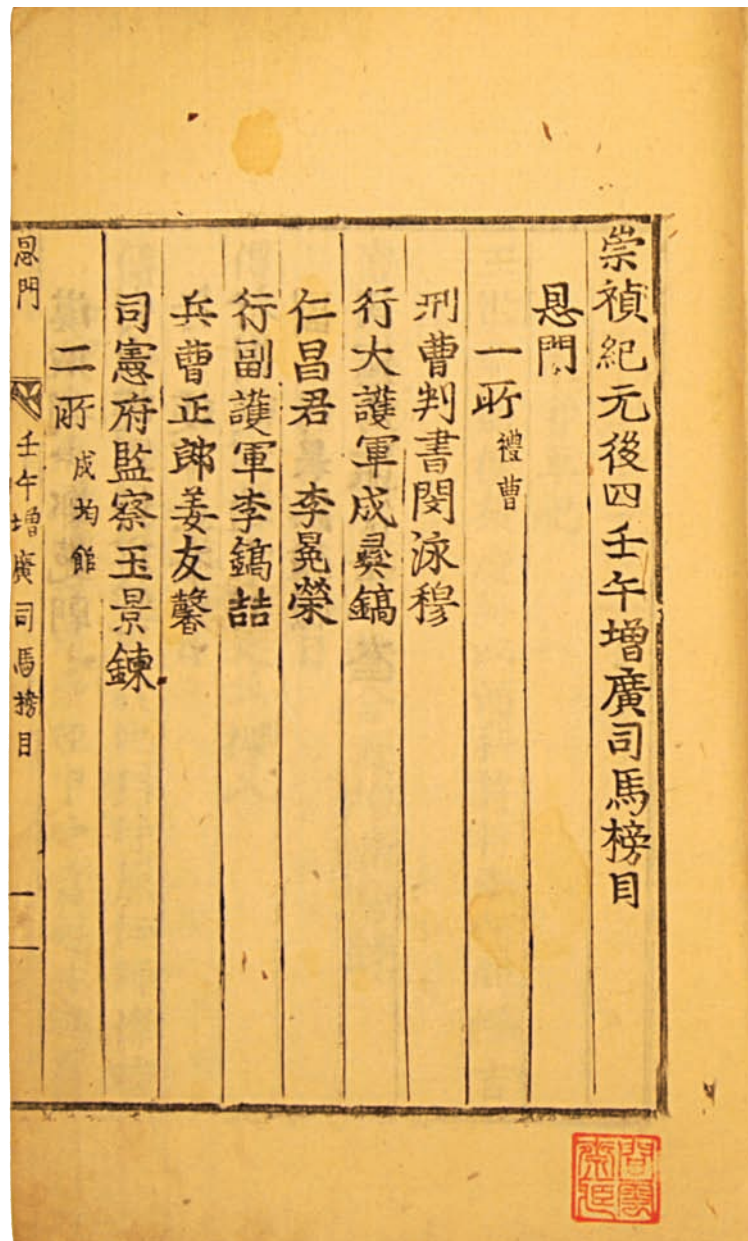 崇禎紀元後四壬午增廣司馬榜目
恩門
一所 禮曹
刑曹判書閔泳穆
行大護軍成彛鎬
仁昌君 李晃榮
行副護軍李鎬喆
兵曹正郎姜友馨
司憲府監察玉景鍊
二所 成均館
恩門 壬午增廣司馬榜目 一